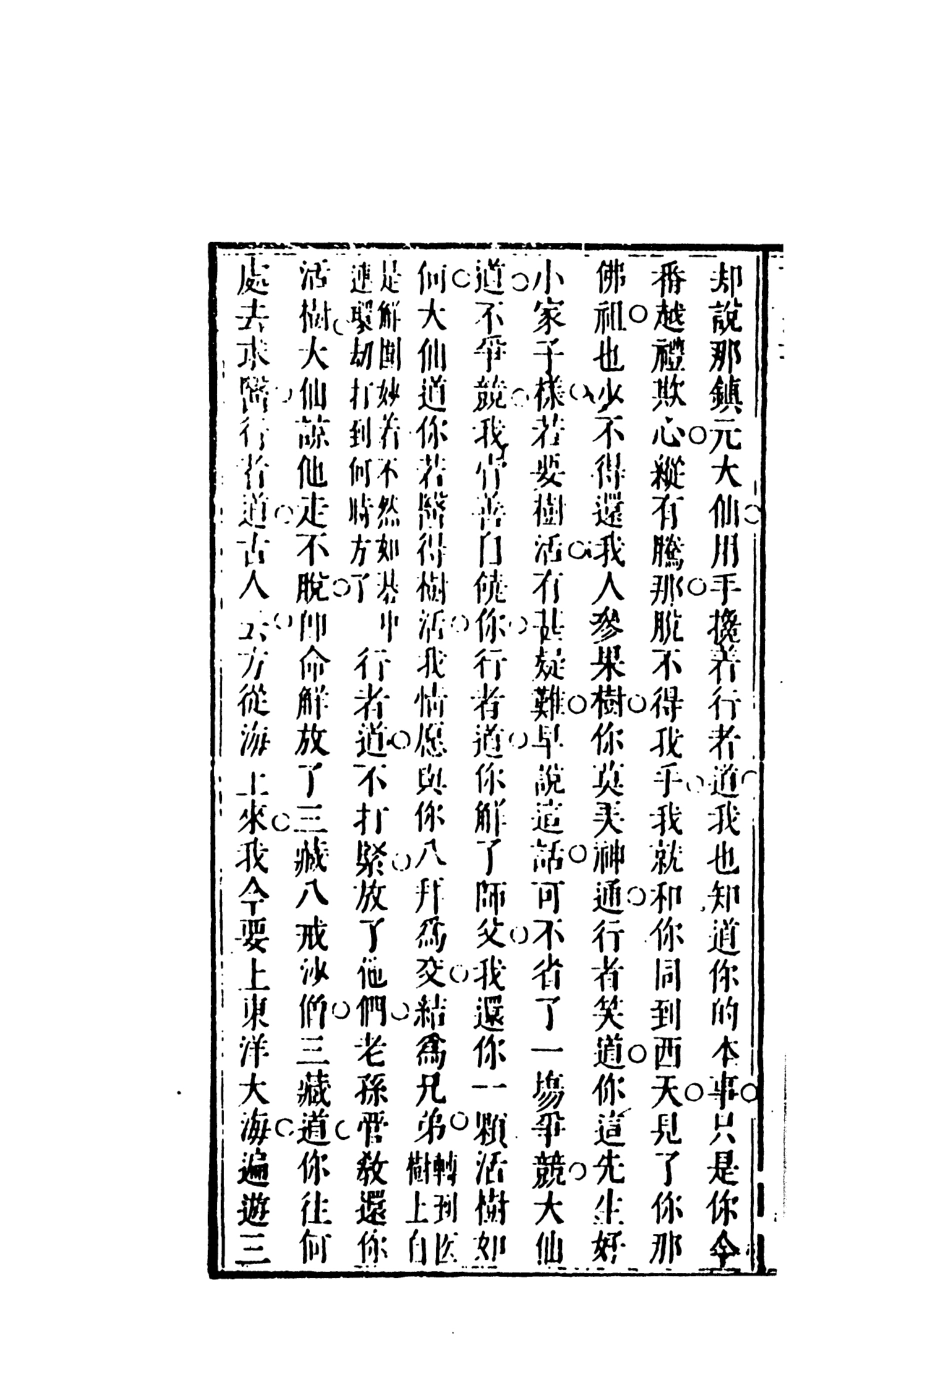 却說那鎮元大仙用手攙着行者道我也知道你的本事只是你今
番越禮欺心縱有騰那脫不得我手我就和你同到西天見了你那
佛祖也少不得還我人參果樹你莫美神通行者笑道你這先生好
小家子樣若要樹活有甚疑難早說這話可不省了一塲爭競大仙
道不爭競我肯善自饒你行者道你解了師父我還你一顆活樹如
何大仙道你若醫得樹活我情愿與你八拜爲交結爲兄弟轉到医
樹上自
是解圍妙着不然如棊中
連環刼打到何時方了
行者道不打緊放了他們老孫管敎還你
活樹大仙諒他走不脫卽命解放了三藏八戒沙僧三藏道你往何
處去求醫行者道古人云方從海上來我今要上東洋大海遍遊三